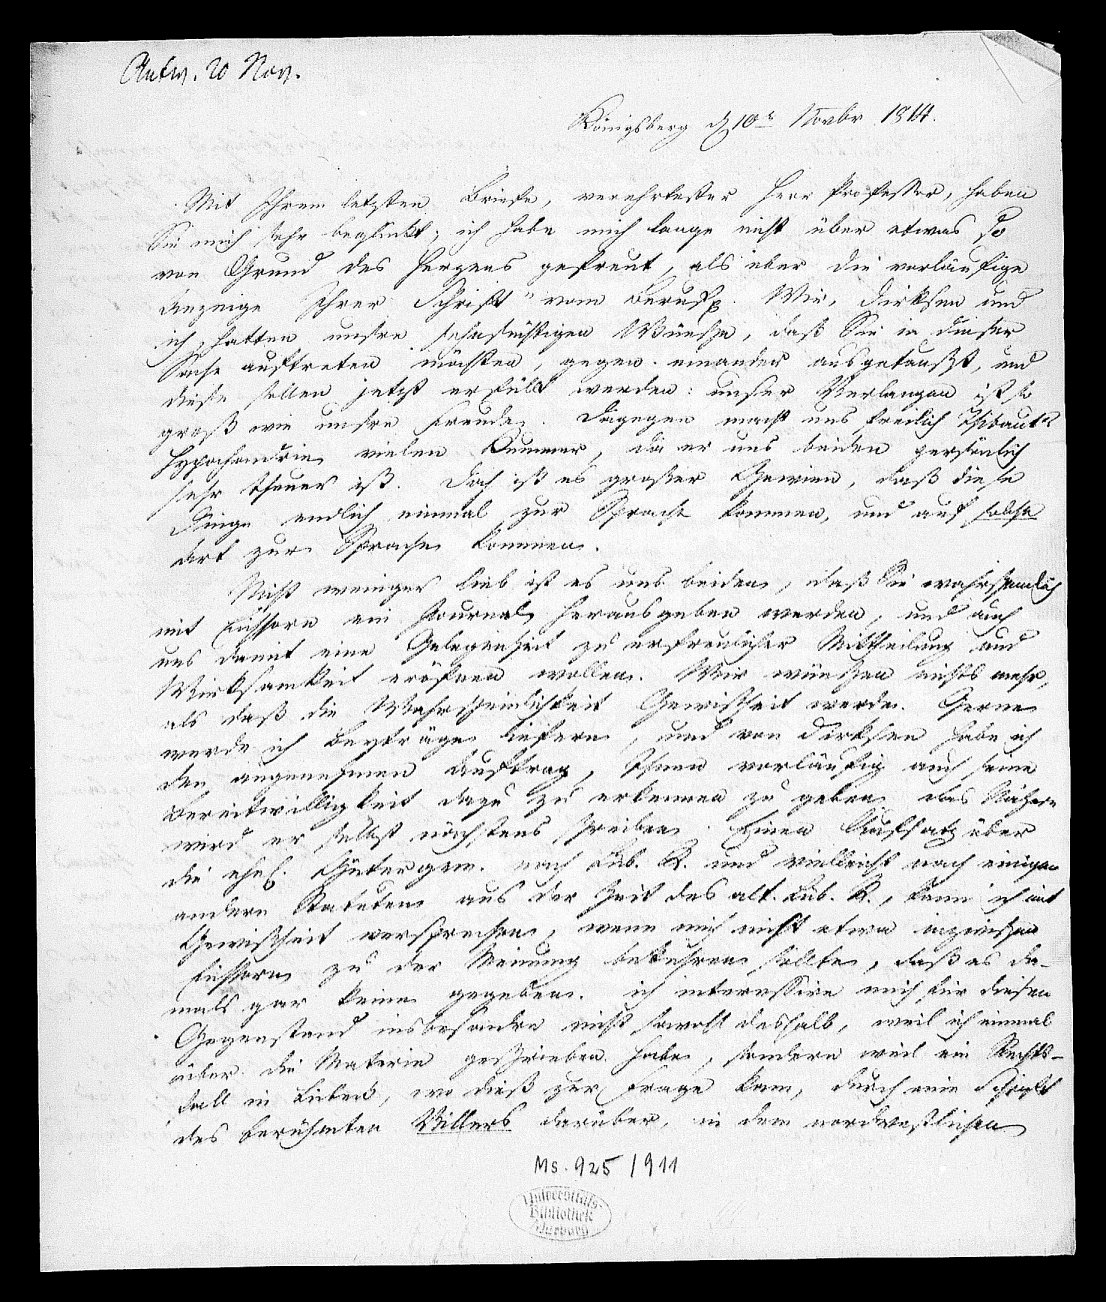 Antw. 20 Nov.
Königsberg d 10t Novbr 1814.
Mit Ihrem letzten Briefe, verehrtester Herr Professor, haben
Sie mich sehr beglückt; ich habe mich lange nicht über etwas so
von Grund des Herzens gefreut, als über die vorläufige
Anzeige Ihrer Schrift vom Beruf p. Wir, Dirksen und
ich, hatten unsre sehnsüchtigen Wünsche, daß Sie in dieser
Sache auftreten möchten, gegen einander ausgetauscht, und
diese sollen jetzt erfüllt werden: unser Verlangen ist so
groß wie unsre Freude. Dagegen macht uns freilich Thibaut's
Hypochondrie vielen Kummer, da er uns beiden persönlich
sehr theuer ist. Doch ist es großer Gewinn, daß diese
Dinge endlich einmal zur Sprache kommen, und auf solche
Art zur Sprache kommen.
Nicht weniger lieb ist es uns beiden, daß Sie wahrscheinlich
mit Eichhorn ein Journal herausgeben werden, und auch
uns damit eine Gelegenheit zu erfreulicher Mittheilung und
Wirksamkeit eröfnen wollen. Wir wünschen nichts mehr,
als daß die Wahrscheinlichkeit Gewißheit werde. Gerne
werde ich Beyträge liefern, und von Dirksen habe ich
den angenehmen Auftrag, Ihnen vorläufig auch seine
Bereitwilligkeit dazu zu erkennen zu geben. das Nähere
wird er selbst nächstens schreiben. Einen Aufsatz über
die ehel. Gütergem. nach Lüb. R. und vielleicht nach einigen
andern Statuten aus der Zeit des alt. Lüb. R., kann ich mit
Gewißheit versprechen, wenn mich nicht etwa inzwischen
Eichhorn zu der Meinung bekehren sollte, daß es da-
mals gar keine gegeben. ich interessire mich für diesen
Gegenstand insbesondre nicht sowohl deshalb, weil ich einmal
über die Materie geschrieben habe, sondern weil ein Rechts-
fall in Lübeck, wo dieß zur Frage kam, durch eine Schrift
des berühmten Villers darüber, in dem nordwestlichen
Ms. 925/911
Universitäts-
Bibliothek
Marburg